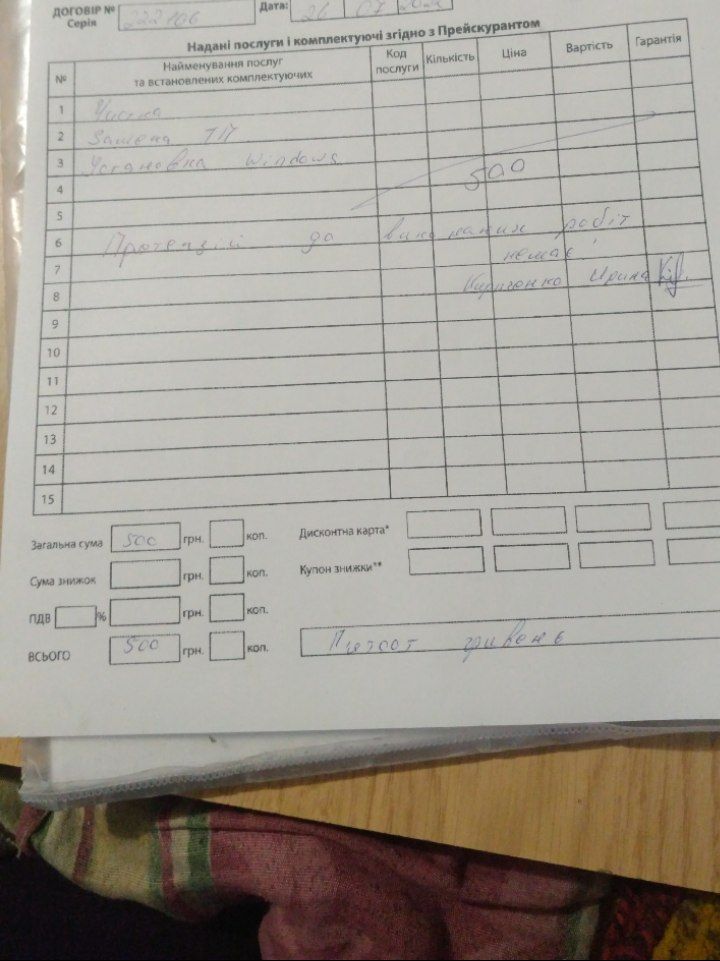 ДОГОВІР № Серія 222166 Дата: 26 07
Надані послуги і комплектуючі згідно з Прейскурантом
№ Найменування послуг та встановлених комплектуючих Код послуги Кількість Ціна Вартість Гарантія
1 Чистка
2 Замена ТП
3 Установка Windows
500
4
5
6 Претензій до виконаних робіт
7 немає!
8 Ирина
9
10
11
12
13
14
15
Загальна сума 500 грн. коп. Дисконтна карта*
Сума знижок грн. коп. Купон знижки**
ПДВ % грн. коп.
ВСЬОГО 500 грн. коп. Пятсот гривень